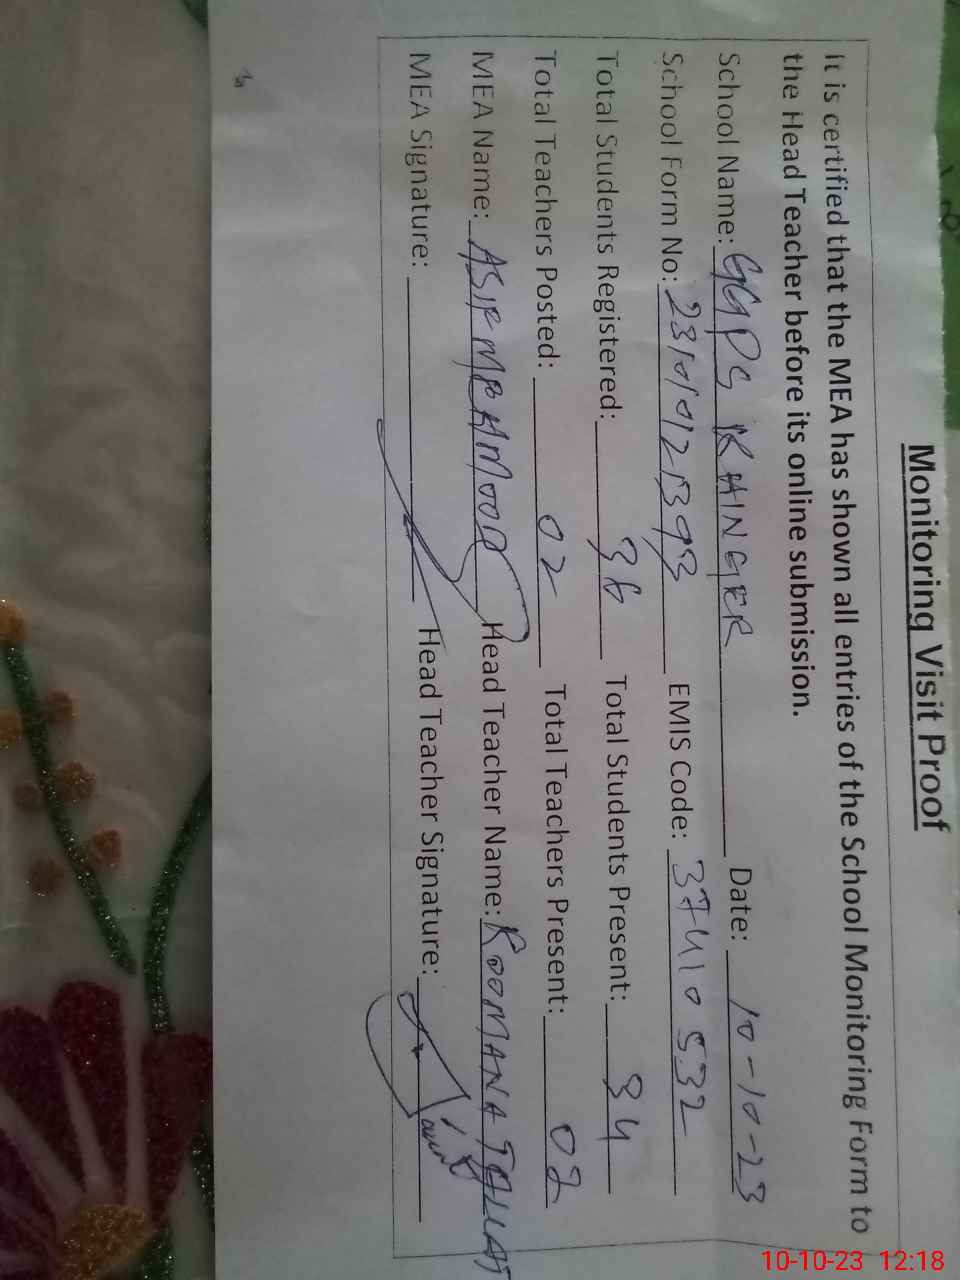 Monitoring Visit Proof
It is certified that the MEA has shown all entries of the School Monitoring Form to
the Head Teacher before its online submission.
School Name: GGPS KHINGER Date: 10-10-23
School Form No: 231010121393 EMIS Code: 37410532
Total Students Registered: 36 Total Students Present: 34
Total Teachers Posted: 02 Total Teachers Present: 02
MEA Name: ASIF MEHMOOD Head Teacher Name: ROOMANA TALLAT
MEA Signature: Head Teacher Signature:
10-10-23 12:18